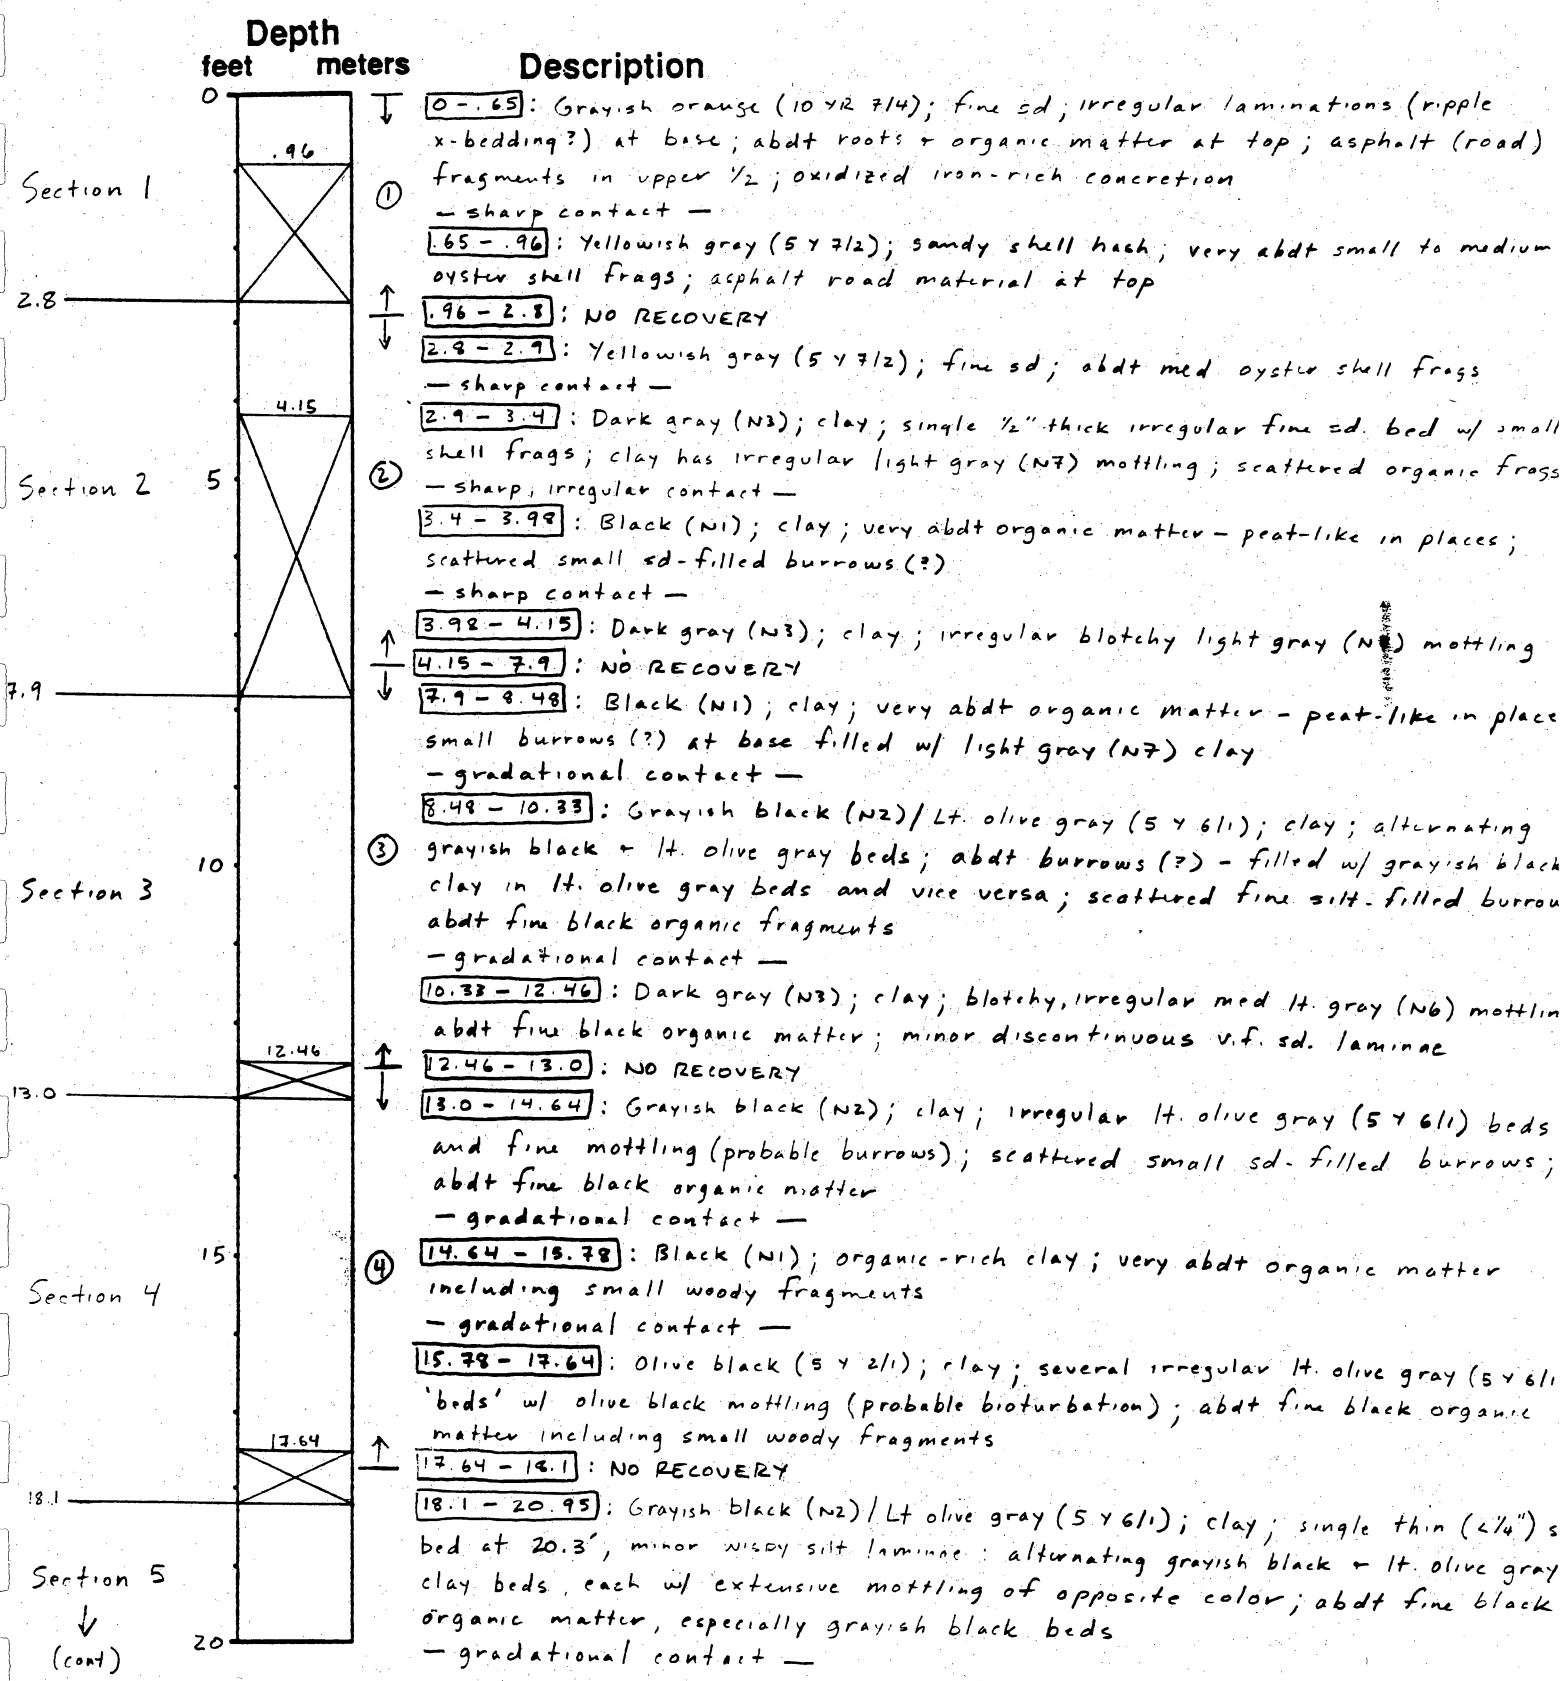 Depth
feet meters Description
0
0 - .65 : Grayish orange (10 YR 7/4); fine sd; irregular laminations (ripple
x-bedding?) at base; abdt roots + organic matter at top; asphalt (road)
.96
Section 1
fragments in upper 1/2; oxidized iron-rich concretion
①
— sharp contact —
.65 - .96 : Yellowish gray (5 Y 7/2); sandy shell hash; very abdt small to medium
oyster shell frags; asphalt road material at top
2.8
.96 - 2.8 : NO RECOVERY
2.8 - 2.9 : Yellowish gray (5 Y 7/2); fine sd; abdt med oyster shell frags
— sharp contact —
4.15
2.9 - 3.4 : Dark gray (N3); clay; single 1/2" thick irregular fine sd. bed w/ small
shell frags; clay has irregular light gray (N7) mottling; scattered organic frags
Section 2
5
②
— sharp, irregular contact —
3.4 - 3.98 : Black (N1); clay; very abdt organic matter - peat-like in places;
scattered small sd-filled burrows (?)
— sharp contact —
3.98 - 4.15 : Dark gray (N3); clay; irregular blotchy light gray (N ) mottling
4.15 - 7.9 : NO RECOVERY
7.9
7.9 - 8.48 : Black (N1); clay; very abdt organic matter - peat-like in place
small burrows (?) at base filled w/ light gray (N7) clay
— gradational contact —
8.48 - 10.33 : Grayish black (N2)/Lt. olive gray (5 Y 6/1); clay; alternating
10
③
grayish black + lt. olive gray beds; abdt burrows (?) - filled w/ grayish black
Section 3
clay in lt. olive gray beds and vice versa; scattered fine silt-filled burrow
abdt fine black organic fragments
— gradational contact —
10.33 - 12.46 : Dark gray (N3); clay; blotchy, irregular med lt. gray (N6) mottlin
abdt fine black organic matter; minor discontinuous v.f. sd. laminae
12.46
12.46 - 13.0 : NO RECOVERY
13.0
13.0 - 14.64 : Grayish black (N2); clay; irregular lt. olive gray (5 Y 6/1) beds
and fine mottling (probable burrows); scattered small sd-filled burrows;
abdt fine black organic matter
— gradational contact —
15
④
14.64 - 15.78 : Black (N1); organic-rich clay; very abdt organic matter
Section 4
including small woody fragments
— gradational contact —
15.78 - 17.64 : Olive black (5 Y 2/1); clay; several irregular lt. olive gray (5 Y 6/1
'beds' w/ olive black mottling (probable bioturbation); abdt fine black organic
matter including small woody fragments
17.64
17.64 - 18.1 : NO RECOVERY
18.1
18.1 - 20.95 : Grayish black (N2)/Lt olive gray (5 Y 6/1); clay; single thin (<1/4") s
bed at 20.3', minor wispy silt laminae: alternating grayish black + lt. olive gray
Section 5
clay beds, each w/ extensive mottling of opposite color; abdt fine black
organic matter, especially grayish black beds
20
(cont)
— gradational contact —